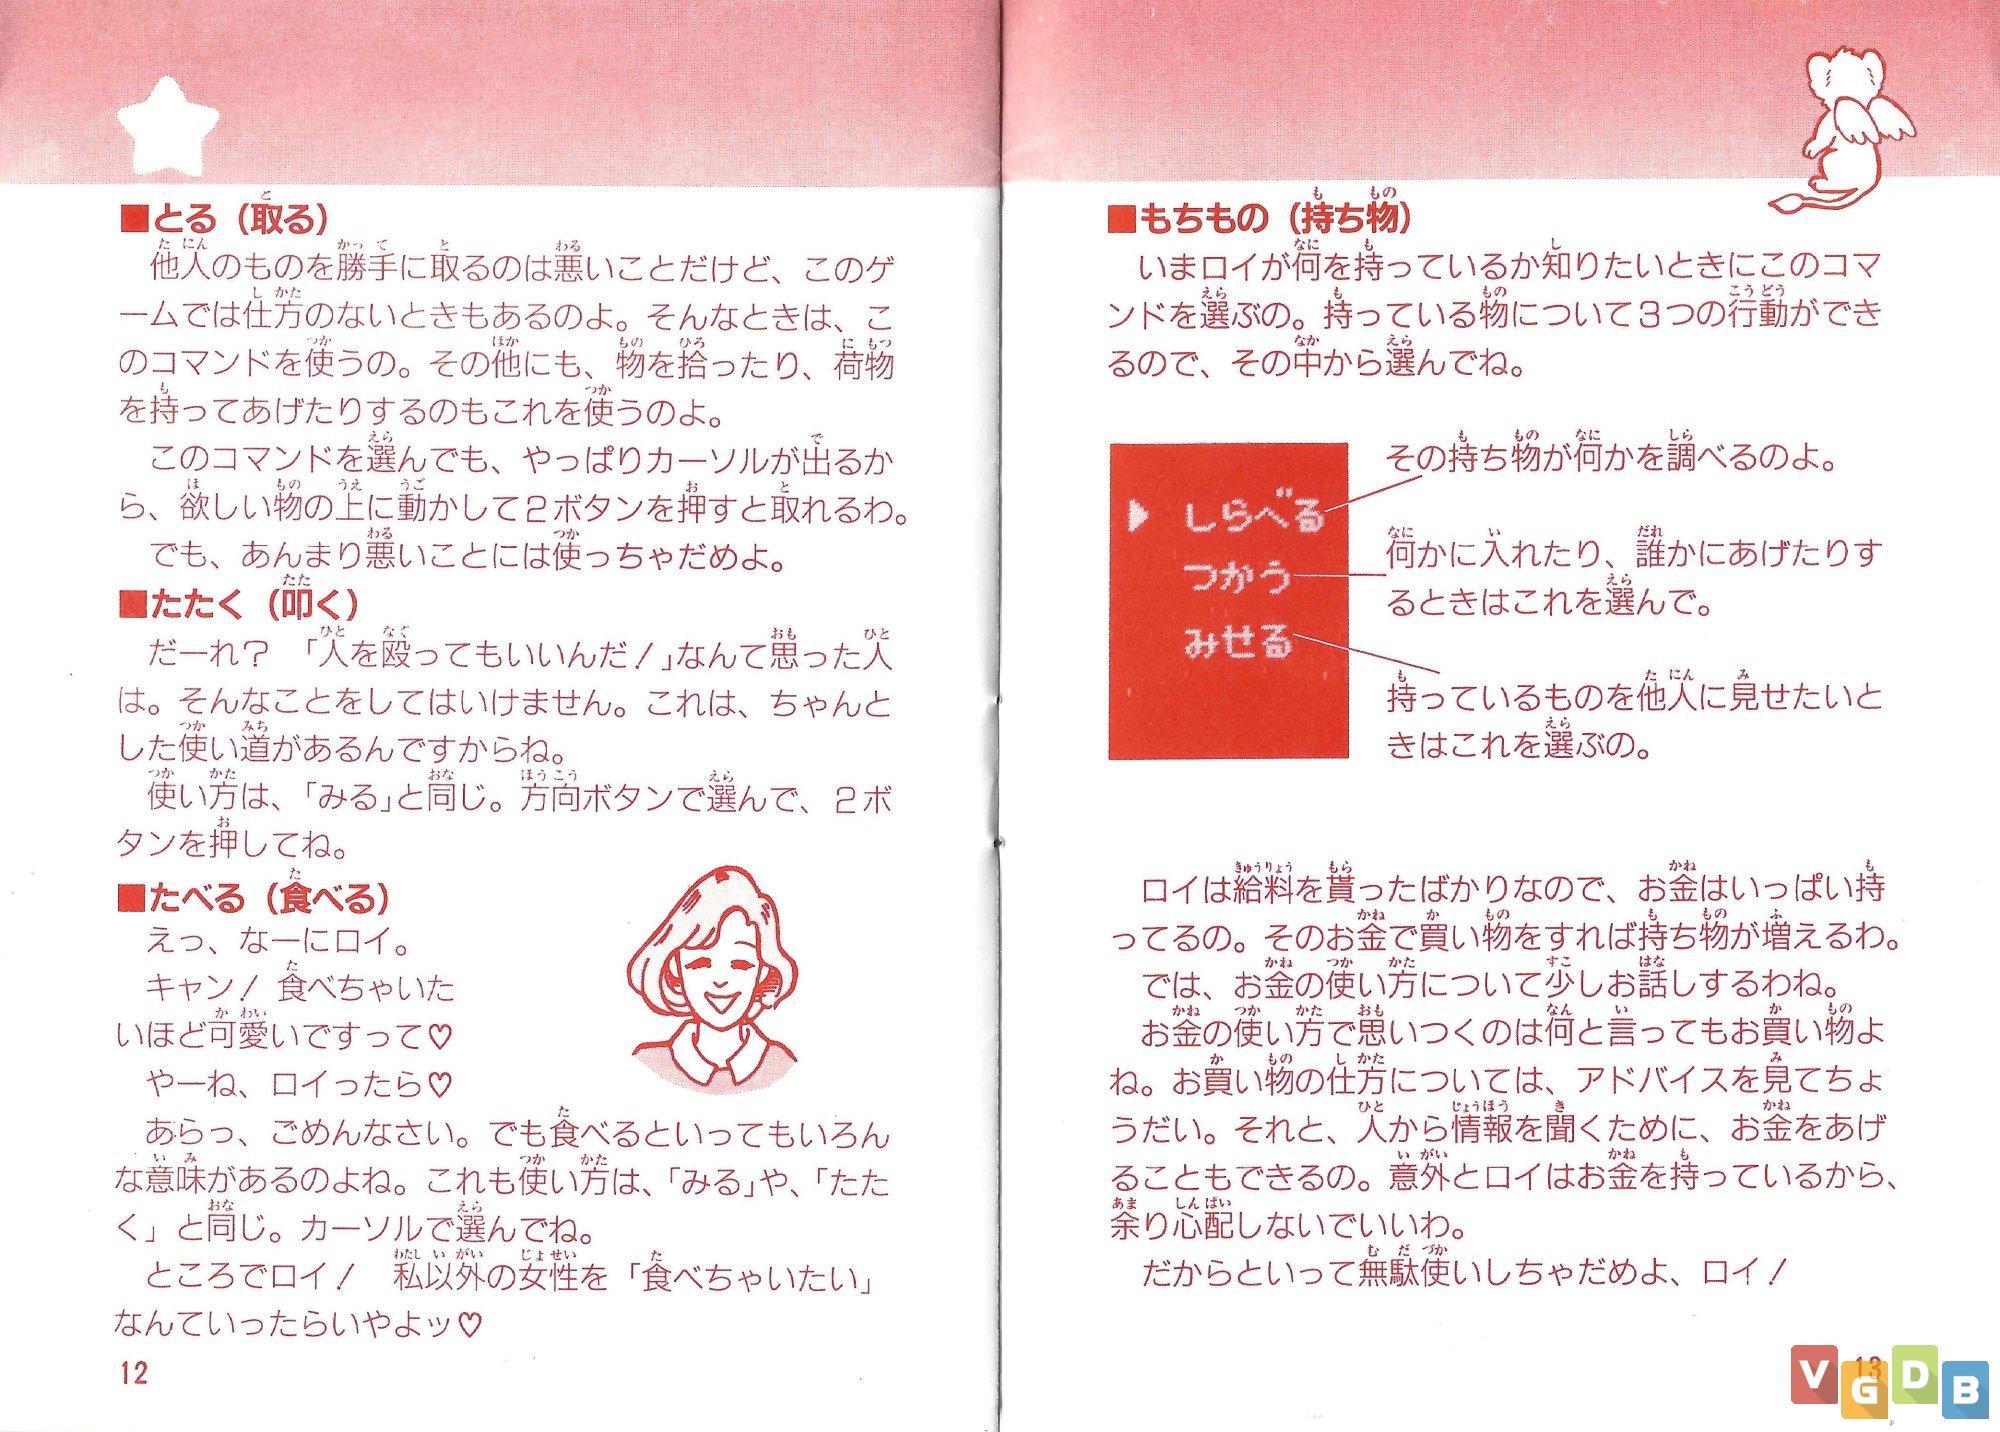 ■とる（取る）
他人のものを勝手に取るのは悪いことだけど、このゲ
ームでは仕方のないときもあるのよ。そんなときは、こ
のコマンドを使うの。その他にも、物を拾ったり、荷物
を持ってあげたりするのもこれを使うのよ。
このコマンドを選んでも、やっぱりカーソルが出るか
ら、欲しい物の上に動かして2ボタンを押すと取れるわ。
でも、あんまり悪いことには使っちゃだめよ。
■たたく（叩く）
だーれ？　「人を殴ってもいいんだ！」なんて思った人
は。そんなことをしてはいけません。これは、ちゃんと
した使い道があるんですからね。
使い方は、「みる」と同じ。方向ボタンで選んで、2ボ
タンを押してね。
■たべる（食べる）
えっ、なーにロイ。
キャン！ 食べちゃいた
いほど可愛いですって♡
やーね、ロイったら♡
あらっ、ごめんなさい。でも食べるといってもいろん
な意味があるのよね。これも使い方は、「みる」や、「たた
く」と同じ。カーソルで選んでね。
ところでロイ！　私以外の女性を「食べちゃいたい」
なんていったらいやよッ♡
12
■もちもの（持ち物）
いまロイが何を持っているか知りたいときにこのコマ
ンドを選ぶの。持っている物について3つの行動ができ
るので、その中から選んでね。
▶ しらべる
つかう
みせる
その持ち物が何かを調べるのよ。
何かに入れたり、誰かにあげたりす
るときはこれを選んで。
持っているものを他人に見せたいと
きはこれを選ぶの。
ロイは給料を貰ったばかりなので、お金はいっぱい持
ってるの。そのお金で買い物をすれば持ち物が増えるわ。
では、お金の使い方について少しお話しするわね。
お金の使い方で思いつくのは何と言ってもお買い物よ
ね。お買い物の仕方については、アドバイスを見てちょ
うだい。それと、人から情報を聞くために、お金をあげ
ることもできるの。意外とロイはお金を持っているから、
余り心配しないでいいわ。
だからといって無駄使いしちゃだめよ、ロイ！
13
VGDB